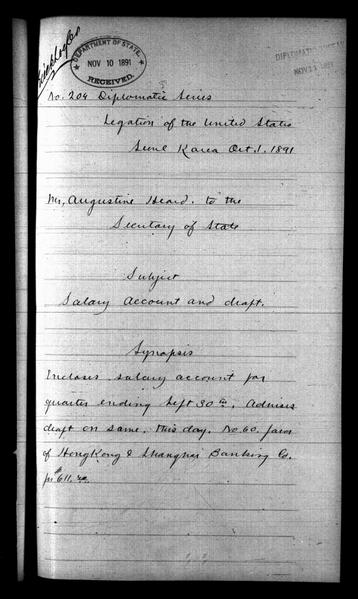 DEPARTMENT OF STATE.
NOV 10 1891
RECEIVED.
DIPLOMATIC
NOV 1891
No. 204 Diplomatic Series
Legation of the United States
Seoul Korea Oct. 1. 1891
Mr. Augustine Heard. to the
Secretary of State
Subject
Salary Account and draft.
Synopsis
Incloses salary account for
quarter ending Sept 30th. Advises
draft on same. this day. No. 60. favor
of HongKong & Shanghai Banking Co.
for $611.